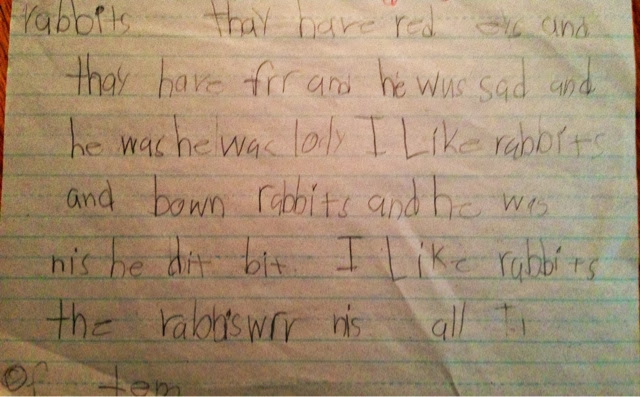 rabbits thay have red eys and
thay have frr and he wus sad and
he was he was lody I Like rabbits
and bown rabbits and he was
nis he dit bit I Like rabbits
the rabbis wrr nis all
Of tem